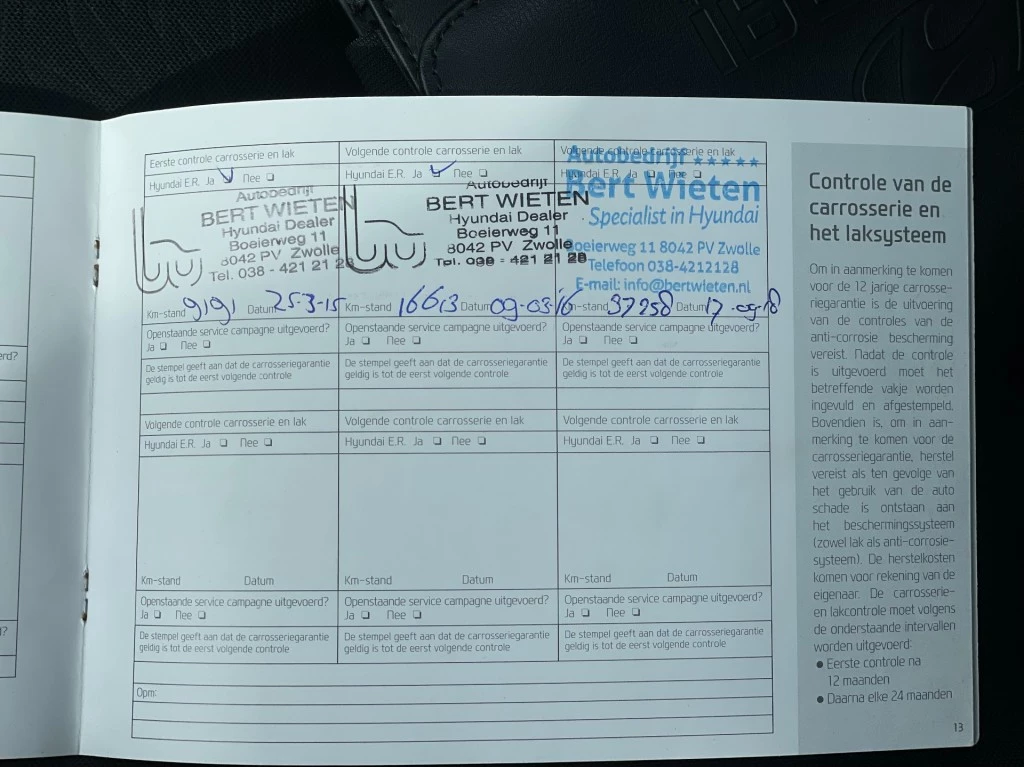 Eerste controle carrosserie en lak
Hyundai E.R. Ja ❑ Nee ❑
Autobedrijf
BERT WIETEN
Hyundai Dealer
Boeierweg 11
8042 PV Zwolle
Tel. 038 - 421 21 28
Km-stand 9191 Datum 25-3-15
Openstaande service campagne uitgevoerd?
Ja ❑ Nee ❑
De stempel geeft aan dat de carrosseriegarantie
geldig is tot de eerst volgende controle
Volgende controle carrosserie en lak
Hyundai E.R. Ja ❑ Nee ❑
Autobedrijf
BERT WIETEN
Hyundai Dealer
Boeierweg 11
8042 PV Zwolle
Tel. 038 - 421 21 28
Km-stand 16613 Datum 09-03-16
Openstaande service campagne uitgevoerd?
Ja ❑ Nee ❑
De stempel geeft aan dat de carrosseriegarantie
geldig is tot de eerst volgende controle
Volgende controle carrosserie en lak
Hyundai E.R. Ja ❑ Nee ❑
Autobedrijf ★★★★★
Bert Wieten
Specialist in Hyundai
Boeierweg 11 8042 PV Zwolle
Telefoon 038-4212128
E-mail: info@bertwieten.nl
Km-stand 37258 Datum 17-09-18
Openstaande service campagne uitgevoerd?
Ja ❑ Nee ❑
De stempel geeft aan dat de carrosseriegarantie
geldig is tot de eerst volgende controle
Volgende controle carrosserie en lak
Hyundai E.R. Ja ❑ Nee ❑
Km-stand Datum
Openstaande service campagne uitgevoerd?
Ja ❑ Nee ❑
De stempel geeft aan dat de carrosseriegarantie
geldig is tot de eerst volgende controle
Volgende controle carrosserie en lak
Hyundai E.R. Ja ❑ Nee ❑
Km-stand Datum
Openstaande service campagne uitgevoerd?
Ja ❑ Nee ❑
De stempel geeft aan dat de carrosseriegarantie
geldig is tot de eerst volgende controle
Volgende controle carrosserie en lak
Hyundai E.R. Ja ❑ Nee ❑
Km-stand Datum
Openstaande service campagne uitgevoerd?
Ja ❑ Nee ❑
De stempel geeft aan dat de carrosseriegarantie
geldig is tot de eerst volgende controle
Opm:
Controle van de
carrosserie en
het laksysteem
Om in aanmerking te komen
voor de 12 jarige carrosse-
riegarantie is de uitvoering
van de controles van de
anti-corrosie bescherming
vereist. Nadat de controle
is uitgevoerd moet het
betreffende vakje worden
ingevuld en afgestempeld.
Bovendien is, om in aan-
merking te komen voor de
carrosseriegarantie, herstel
vereist als ten gevolge van
het gebruik van de auto
schade is ontstaan aan
het beschermingssysteem
(zowel lak als anti-corrosie-
systeem). De herstelkosten
komen voor rekening van de
eigenaar. De carrosserie-
en lakcontrole moet volgens
de onderstaande intervallen
worden uitgevoerd:
● Eerste controle na
12 maanden
● Daarna elke 24 maanden
13